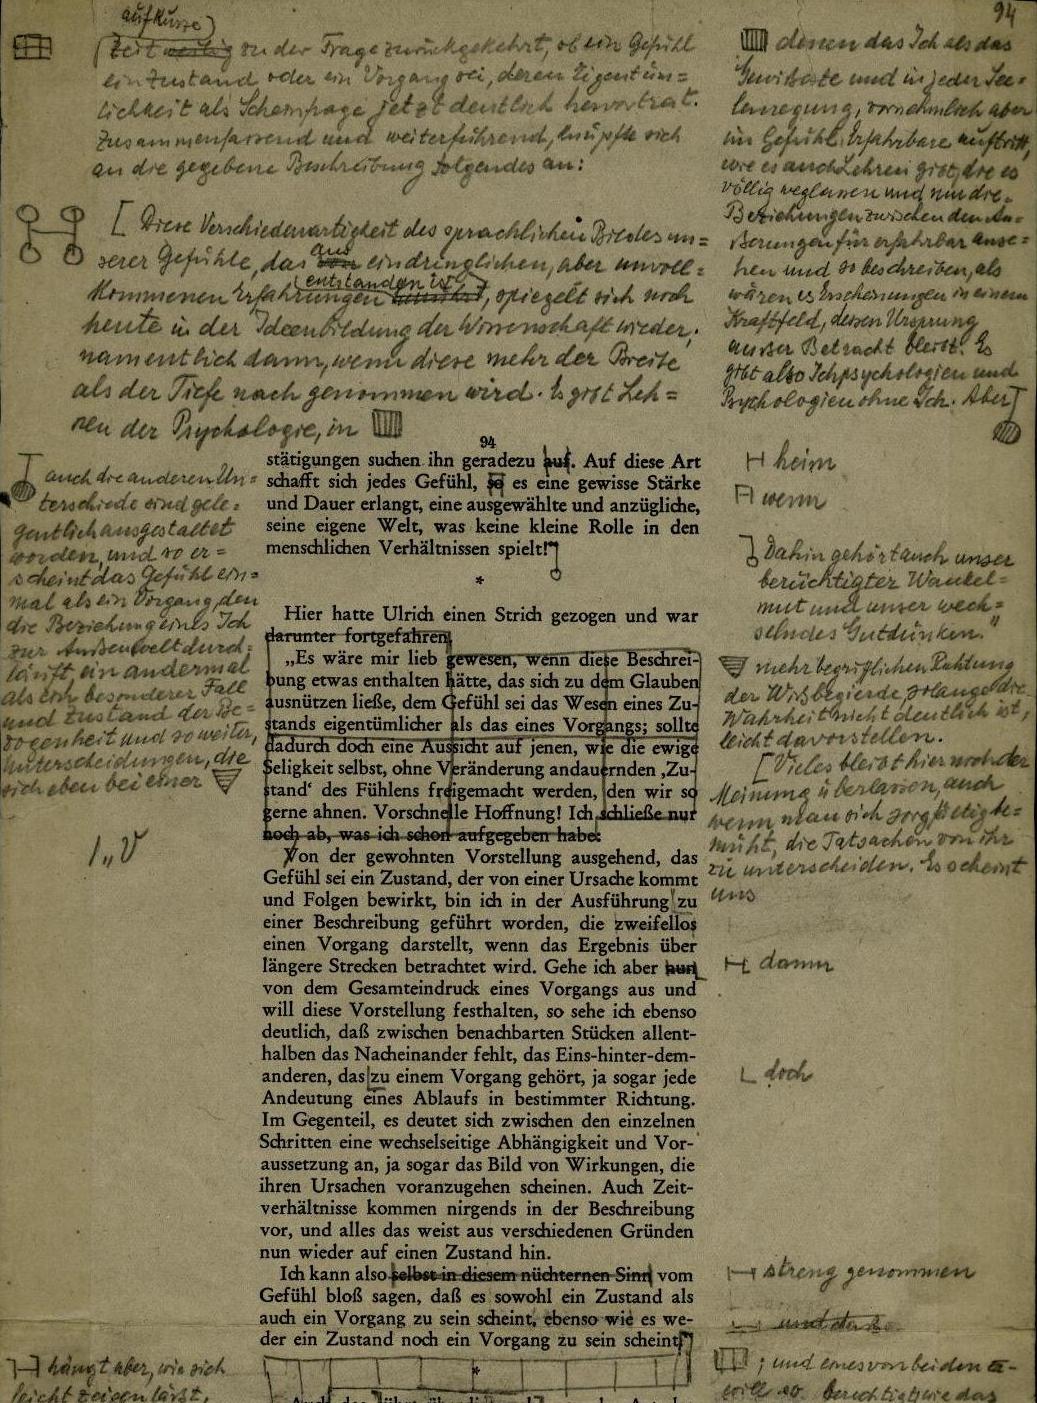 94
auf kurze
Zeit zu der Frage zurückgekehrt, ob ein Gefühl
ein Zustand oder ein Vorgang sei, deren Eigentüm=
lichkeit als Scheinfrage jetzt deutlich hervortrat.
Zusammenfassend und weiterführend, knüpfte sich
an die gegebene Beschreibung folgendes an:
[ Diese Verschiedenartigkeit des sprachlichen Bildes un=
serer Gefühle, das aus eindringlichen, aber unvoll=
kommenen Erfahrungen entstanden ist, spiegelt sich noch
heute in der Ideenbildung der Wissenschaft wieder,
namentlich dann, wenn diese mehr der Breite
als der Tiefe nach genommen wird. Es gibt Leh=
ren der Psychologie, in
denen das Ich als das
Gewisseste und in jeder See=
lenregung, vornehmlich aber
im Gefühl, Erfahrbare auftritt,
wie es auch Lehren gibt, die es
völlig weglassen und nur die
Beziehungen zwischen den Äu=
ßerungen für erfahrbar anse=
hen und so beschreiben, als
wären es Erscheinungen in einem
Kraftfeld, dessen Ursprung
außer Betracht bleibt. Es
gibt also Ichpsychologien und
Psychologien ohne Ich. Aber
auch die anderen Un=
terschiede sind gele=
gentlich ausgestaltet
worden, und so er=
scheint das Gefühl ein=
mal als ein Vorgang, den
die Beziehung eines Ich
zur Außenwelt durch=
läuft, ein andermal
als ein besonderer Fall
und Zustand der Be=
zogenheit und so weiter,
Unterscheidungen, die
sich eben bei einer
1„V
94
stätigungen suchen ihn geradezu auf. Auf diese Art
schafft sich jedes Gefühl, so es eine gewisse Stärke
und Dauer erlangt, eine ausgewählte und anzügliche,
seine eigene Welt, was keine kleine Rolle in den
menschlichen Verhältnissen spielt!
*
Hier hatte Ulrich einen Strich gezogen und war
darunter fortgefahren:
„Es wäre mir lieb gewesen, wenn diese Beschrei-
bung etwas enthalten hätte, das sich zu dem Glauben
ausnützen ließe, dem Gefühl sei das Wesen eines Zu-
stands eigentümlicher als das eines Vorgangs; sollte
dadurch doch eine Aussicht auf jenen, wie die ewige
Seligkeit selbst, ohne Veränderung andauernden ‚Zu-
stand‘ des Fühlens freigemacht werden, den wir so
gerne ahnen. Vorschnelle Hoffnung! Ich schließe nur
noch ab, was ich schon aufgegeben habe:
Von der gewohnten Vorstellung ausgehend, das
Gefühl sei ein Zustand, der von einer Ursache kommt
und Folgen bewirkt, bin ich in der Ausführung zu
einer Beschreibung geführt worden, die zweifellos
einen Vorgang darstellt, wenn das Ergebnis über
längere Strecken betrachtet wird. Gehe ich aber nun
von dem Gesamteindruck eines Vorgangs aus und
will diese Vorstellung festhalten, so sehe ich ebenso
deutlich, daß zwischen benachbarten Stücken allent-
halben das Nacheinander fehlt, das Eins-hinter-dem-
anderen, das zu einem Vorgang gehört, ja sogar jede
Andeutung eines Ablaufs in bestimmter Richtung.
Im Gegenteil, es deutet sich zwischen den einzelnen
Schritten eine wechselseitige Abhängigkeit und Vor-
aussetzung an, ja sogar das Bild von Wirkungen, die
ihren Ursachen voranzugehen scheinen. Auch Zeit-
verhältnisse kommen nirgends in der Beschreibung
vor, und alles das weist aus verschiedenen Gründen
nun wieder auf einen Zustand hin.
Ich kann also selbst in diesem nüchternen Sinn vom
Gefühl bloß sagen, daß es sowohl ein Zustand als
auch ein Vorgang zu sein scheint, ebenso wie es we-
der ein Zustand noch ein Vorgang zu sein scheint
*
heim
wenn
Dahin gehört auch unser
berüchtigter Wankel=
mut und unser wech=
selndes Gutdünken."
mehr begrifflichen Richtung
der Wißbegierde, solange die
Wahrheit nicht deutlich ist,
leicht davorstellen.
[ Vieles bleibt hier noch der
Meinung überlassen, auch
wenn man sich sorgfältig be=
müht, die Tatsachen von ihr
zu unterscheiden. Es scheint
uns
dann
doch
streng genommen
hängt aber, wie sich
leicht zeigen läßt,
; und eines von beiden
so berechtigt wie das